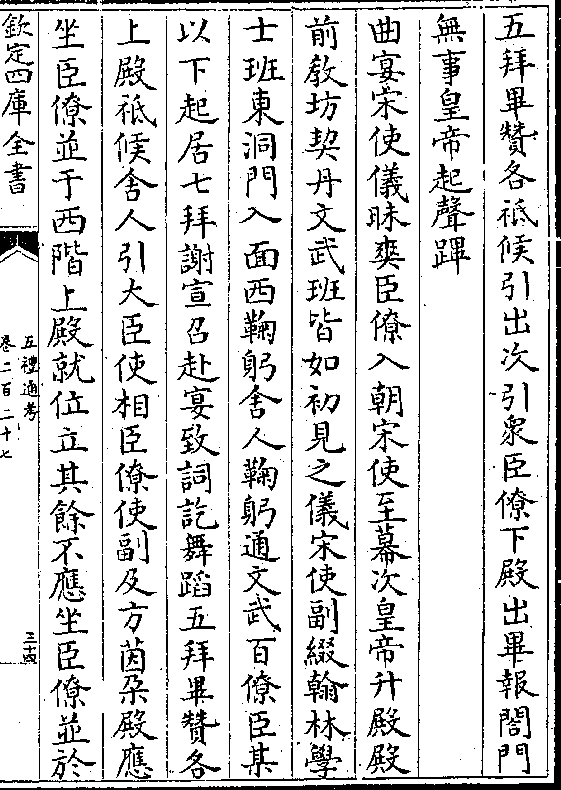 五拜畢贊各祗候引出次引衆臣僚下殿出畢報閤門
無事皇帝起聲蹕
曲宴宋使儀昧爽臣僚入朝宋使至幕次皇帝升殿殿
前教坊契丹文武班皆如初見之儀宋使副綴翰林學
士班東洞門入面西鞠躬舍人鞠躬通文武百僚臣某
以下起居七拜謝宣召赴宴致詞訖舞蹈五拜畢贊各
上殿祗候舍人引大臣使相臣僚使副及方茵朶殿應
坐臣僚並于西階上殿就位立其餘不應坐臣僚並於
欽定四庫全書
五禮通考
卷二百二十七
三十四